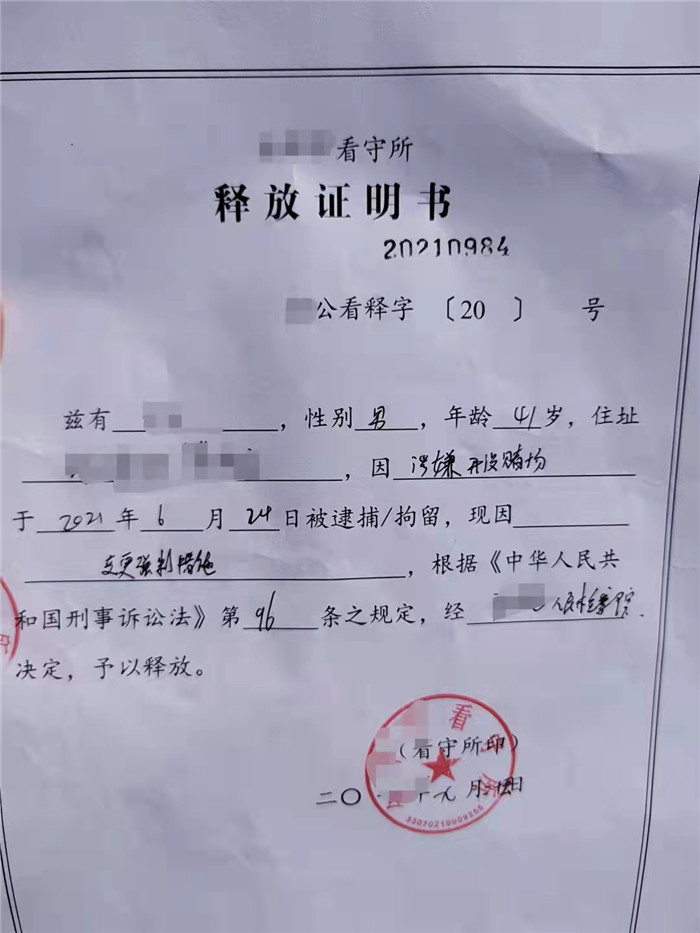 看守所
释放证明书
20210984
公看释字 〔20 〕 号
兹有 ,性别男,年龄41岁,住址
,因涉嫌开设赌场
于2021年6月24日被逮捕/拘留,现因
变更强制措施,根据《中华人民共
和国刑事诉讼法》第96条之规定,经 人民检察院
决定,予以释放。
看
(看守所印)
二〇 年九月 日
33070210009255